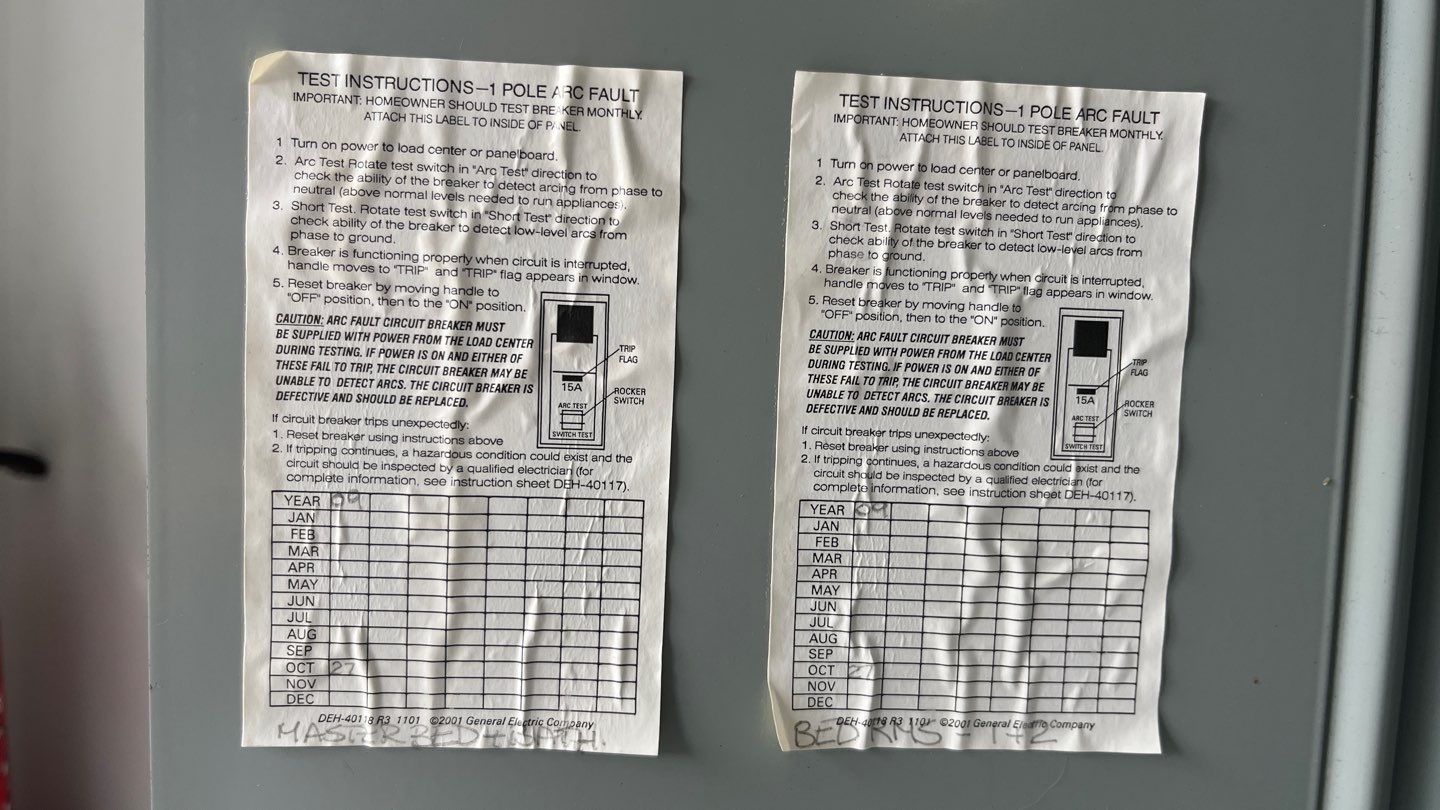 TEST INSTRUCTIONS—1 POLE ARC FAULT
IMPORTANT: HOMEOWNER SHOULD TEST BREAKER MONTHLY.
ATTACH THIS LABEL TO INSIDE OF PANEL.
1 Turn on power to load center or panelboard.
2. Arc Test Rotate test switch in "Arc Test" direction to
check the ability of the breaker to detect arcing from phase to
neutral (above normal levels needed to run appliances).
3. Short Test. Rotate test switch in "Short Test" direction to
check ability of the breaker to detect low-level arcs from
phase to ground.
4. Breaker is functioning properly when circuit is interrupted,
handle moves to "TRIP" and "TRIP" flag appears in window.
5. Reset breaker by moving handle to
"OFF" position, then to the "ON" position.
CAUTION: ARC FAULT CIRCUIT BREAKER MUST
BE SUPPLIED WITH POWER FROM THE LOAD CENTER
DURING TESTING. IF POWER IS ON AND EITHER OF
THESE FAIL TO TRIP, THE CIRCUIT BREAKER MAY BE
UNABLE TO DETECT ARCS. THE CIRCUIT BREAKER IS
DEFECTIVE AND SHOULD BE REPLACED.
TRIP
FLAG
15A
ROCKER
SWITCH
ARC TEST
SWITCH TEST
If circuit breaker trips unexpectedly:
1. Reset breaker using instructions above
2. If tripping continues, a hazardous condition could exist and the
circuit should be inspected by a qualified electrician (for
complete information, see instruction sheet DEH-40117).
YEAR 09
JAN
FEB
MAR
APR
MAY
JUN
JUL
AUG
SEP
OCT 27
NOV
DEC
DEH-40118 R3 1101 ©2001 General Electric Company
MASTER BED + BATH.
TEST INSTRUCTIONS—1 POLE ARC FAULT
IMPORTANT: HOMEOWNER SHOULD TEST BREAKER MONTHLY.
ATTACH THIS LABEL TO INSIDE OF PANEL.
1 Turn on power to load center or panelboard.
2. Arc Test Rotate test switch in "Arc Test" direction to
check the ability of the breaker to detect arcing from phase to
neutral (above normal levels needed to run appliances).
3. Short Test. Rotate test switch in "Short Test" direction to
check ability of the breaker to detect low-level arcs from
phase to ground.
4. Breaker is functioning properly when circuit is interrupted,
handle moves to "TRIP" and "TRIP" flag appears in window.
5. Reset breaker by moving handle to
"OFF" position, then to the "ON" position.
CAUTION: ARC FAULT CIRCUIT BREAKER MUST
BE SUPPLIED WITH POWER FROM THE LOAD CENTER
DURING TESTING. IF POWER IS ON AND EITHER OF
THESE FAIL TO TRIP, THE CIRCUIT BREAKER MAY BE
UNABLE TO DETECT ARCS. THE CIRCUIT BREAKER IS
DEFECTIVE AND SHOULD BE REPLACED.
TRIP
FLAG
15A
ROCKER
SWITCH
ARC TEST
SWITCH TEST
If circuit breaker trips unexpectedly:
1. Reset breaker using instructions above
2. If tripping continues, a hazardous condition could exist and the
circuit should be inspected by a qualified electrician (for
complete information, see instruction sheet DEH-40117).
YEAR 09
JAN
FEB
MAR
APR
MAY
JUN
JUL
AUG
SEP
OCT 27
NOV
DEC
DEH-40118 R3 1101 ©2001 General Electric Company
BED RMS - 1+2